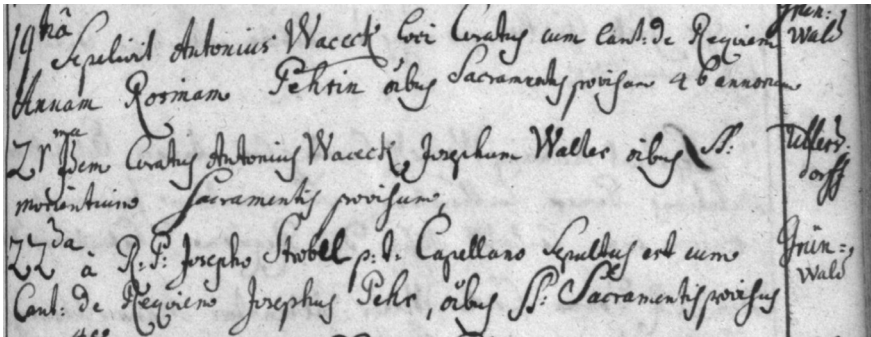 19na Sepelivit Antonius Waceck loci Curatus cum Cant: de Requiem
Grün:
Wald
Annam Rosinam Pehtin oibus Sacramentis provisam 46 annorum
21ma Idem Curatus Antonius Waceck Josephum Walter oibus SS:
Ullers:
dorff
morientium Sacramentis provisum,
22da à R: P: Josepho Strobel p: t: Capellano Sepultus est cum
Grün:
Wald
Cant: de Requiem Josephus Pehr, oibus SS: Sacramentis provisus